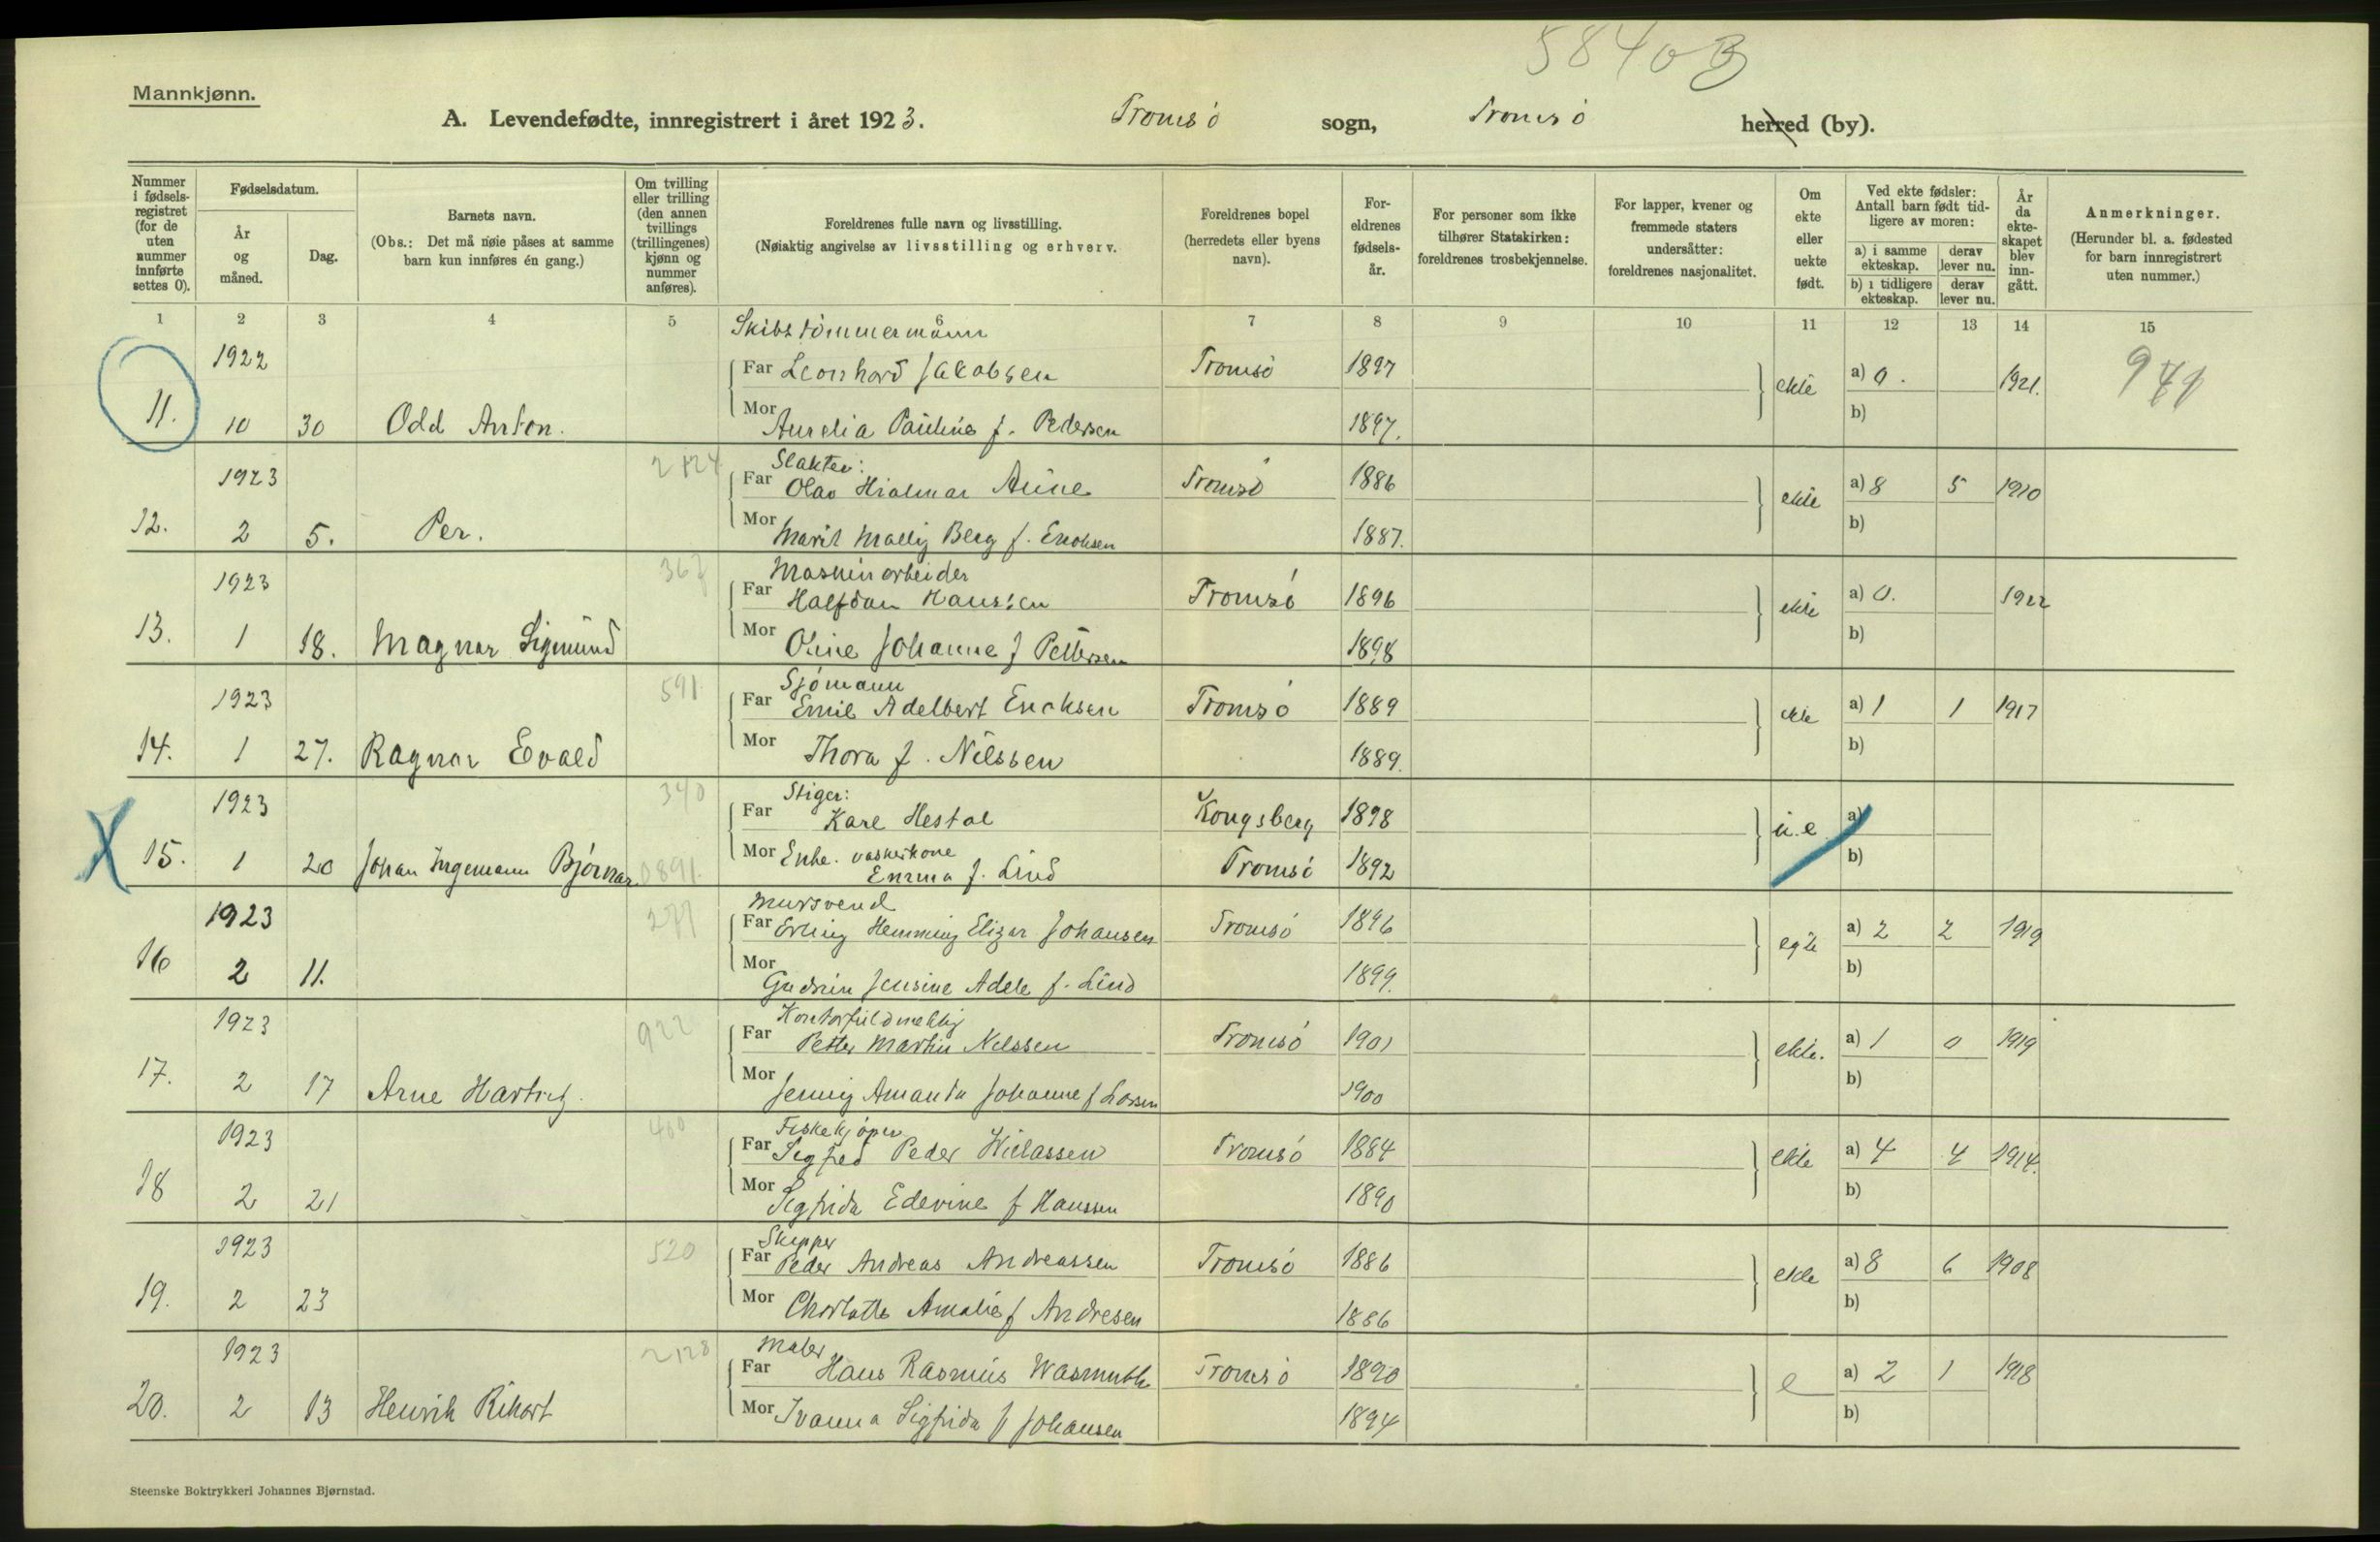 5840B
Mannkjønn.
A. Levendefødte, innregistrert i året 1923. Tromsö sogn, Tromsö herred (by).
Nummer i fødselsregistret (for de uten nummer innførte settes 0).
Fødselsdatum.
År og måned.
Dag.
Barnets navn.
(Obs.: Det må nøie påses at samme barn kun innføres én gang.)
Om tvilling eller trilling (den annen tvillings (trillingenes) kjønn og nummer anføres).
Foreldrenes fulle navn og livsstilling.
(Nøiaktig angivelse av livsstilling og erhverv.
Foreldrenes bopel (herredets eller byens navn).
Foreldrenes fødselsår.
For personer som ikke tilhører Statskirken: foreldrenes trosbekjennelse.
For lapper, kvener og fremmede staters undersåtter: foreldrenes nasjonalitet.
Om ekte eller uekte født.
Ved ekte fødsler: Antall barn født tidligere av moren:
a) i samme ekteskap.
derav lever nu.
b) i tidligere ekteskap.
derav lever nu.
År da ekteskapet blev inngått.
Anmerkninger.
(Herunder bl. a. fødested for barn innregistrert uten nummer.)
1 2 3 4 5 6 7 8 9 10 11 12 13 14 15
Skibstömmermann
1922 Far Leonhard Jakobsen Tromsö 1897 ekte a) 0. 1921.
11. 10 30 Odd Anton. Mor Aurelia Pauline f. Pedersen 1897. b)
Slakter:
1923 2124 Far Olav Hialmar Aune Tromsö 1886 ekte a) 8 5 1910
12. 2 5. Per. Mor Marit Mally Berg f. Enoksen 1887. b)
Maskinarbeider
1923 367 Far Halfdan Hanssen Tromsö 1896 ekte a) 0. 1922
13. 1 18. Magnar Sigmund Mor Oline Johanne f Pettersen 1898 b)
Sjömann
1923 591 Far Emil Adelbert Enoksen Tromsö 1889 ekte a) 1 1 1917
14. 1 27. Ragnar Evald Mor Thora f. Nilssen 1889. b)
Stiger:
1923 340 Far Kare Hestal Kongsberg 1898 u.e a)
15. 1 20 Johan Ingemann Björnar 0891. Mor Enke. vaskerkone Emma f. Lind Tromsö 1892 b)
Mursvend
1923 277 Far Erling Hemming Elizar Johansen Tromsö 1896 egte a) 2 2 1919
16 2 11. Mor Gudrun Jensine Adele f. Lind 1899. b)
1923 922 Far Petter Martin Nilssen Tromsö 1901 ekte. a) 1 0 1919
17. 2 17 Arne Hartvig. Mor Jenny Amanda Johanne f Larsen 1900 b)
Fiskekjöper
1923 400 Far Sigfred Peder Nielassen Tromsö 1884 ekte a) 4 4 1914.
18 2 21 Mor Sigfrida Edevine f Hanssen 1890 b)
Skipper
1923 520 Far Peder Andreas Andreassen Tromsö 1886 ekte a) 8 6 1908
19. 2 23 Mor Charlotte Amalie f Andresen 1886 b)
Maler
1923 2128 Far Hans Rasmus Wasmuth Tromsö 1890 e a) 2 1 1918
20. 2 13 Henrik Rikart Mor Ivanna Sigfrida f Johansen 1894 b)
Steenske Boktrykkeri Johannes Bjørnstad.